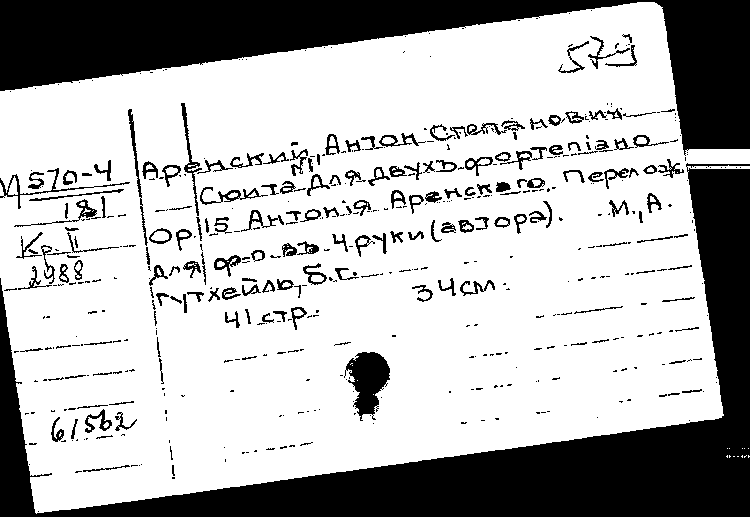 579
Аренский, Антон Степанович
М 570-4
181
Кр. II
2988
№1,
Сюита для двухъ фортепіано
Ор 15 Антонія Аренскаго. Перелож.
для ф-п. въ 4 руки (автора). М., А.
Гутхейль, б.г.
41 стр. 34 см.
61562